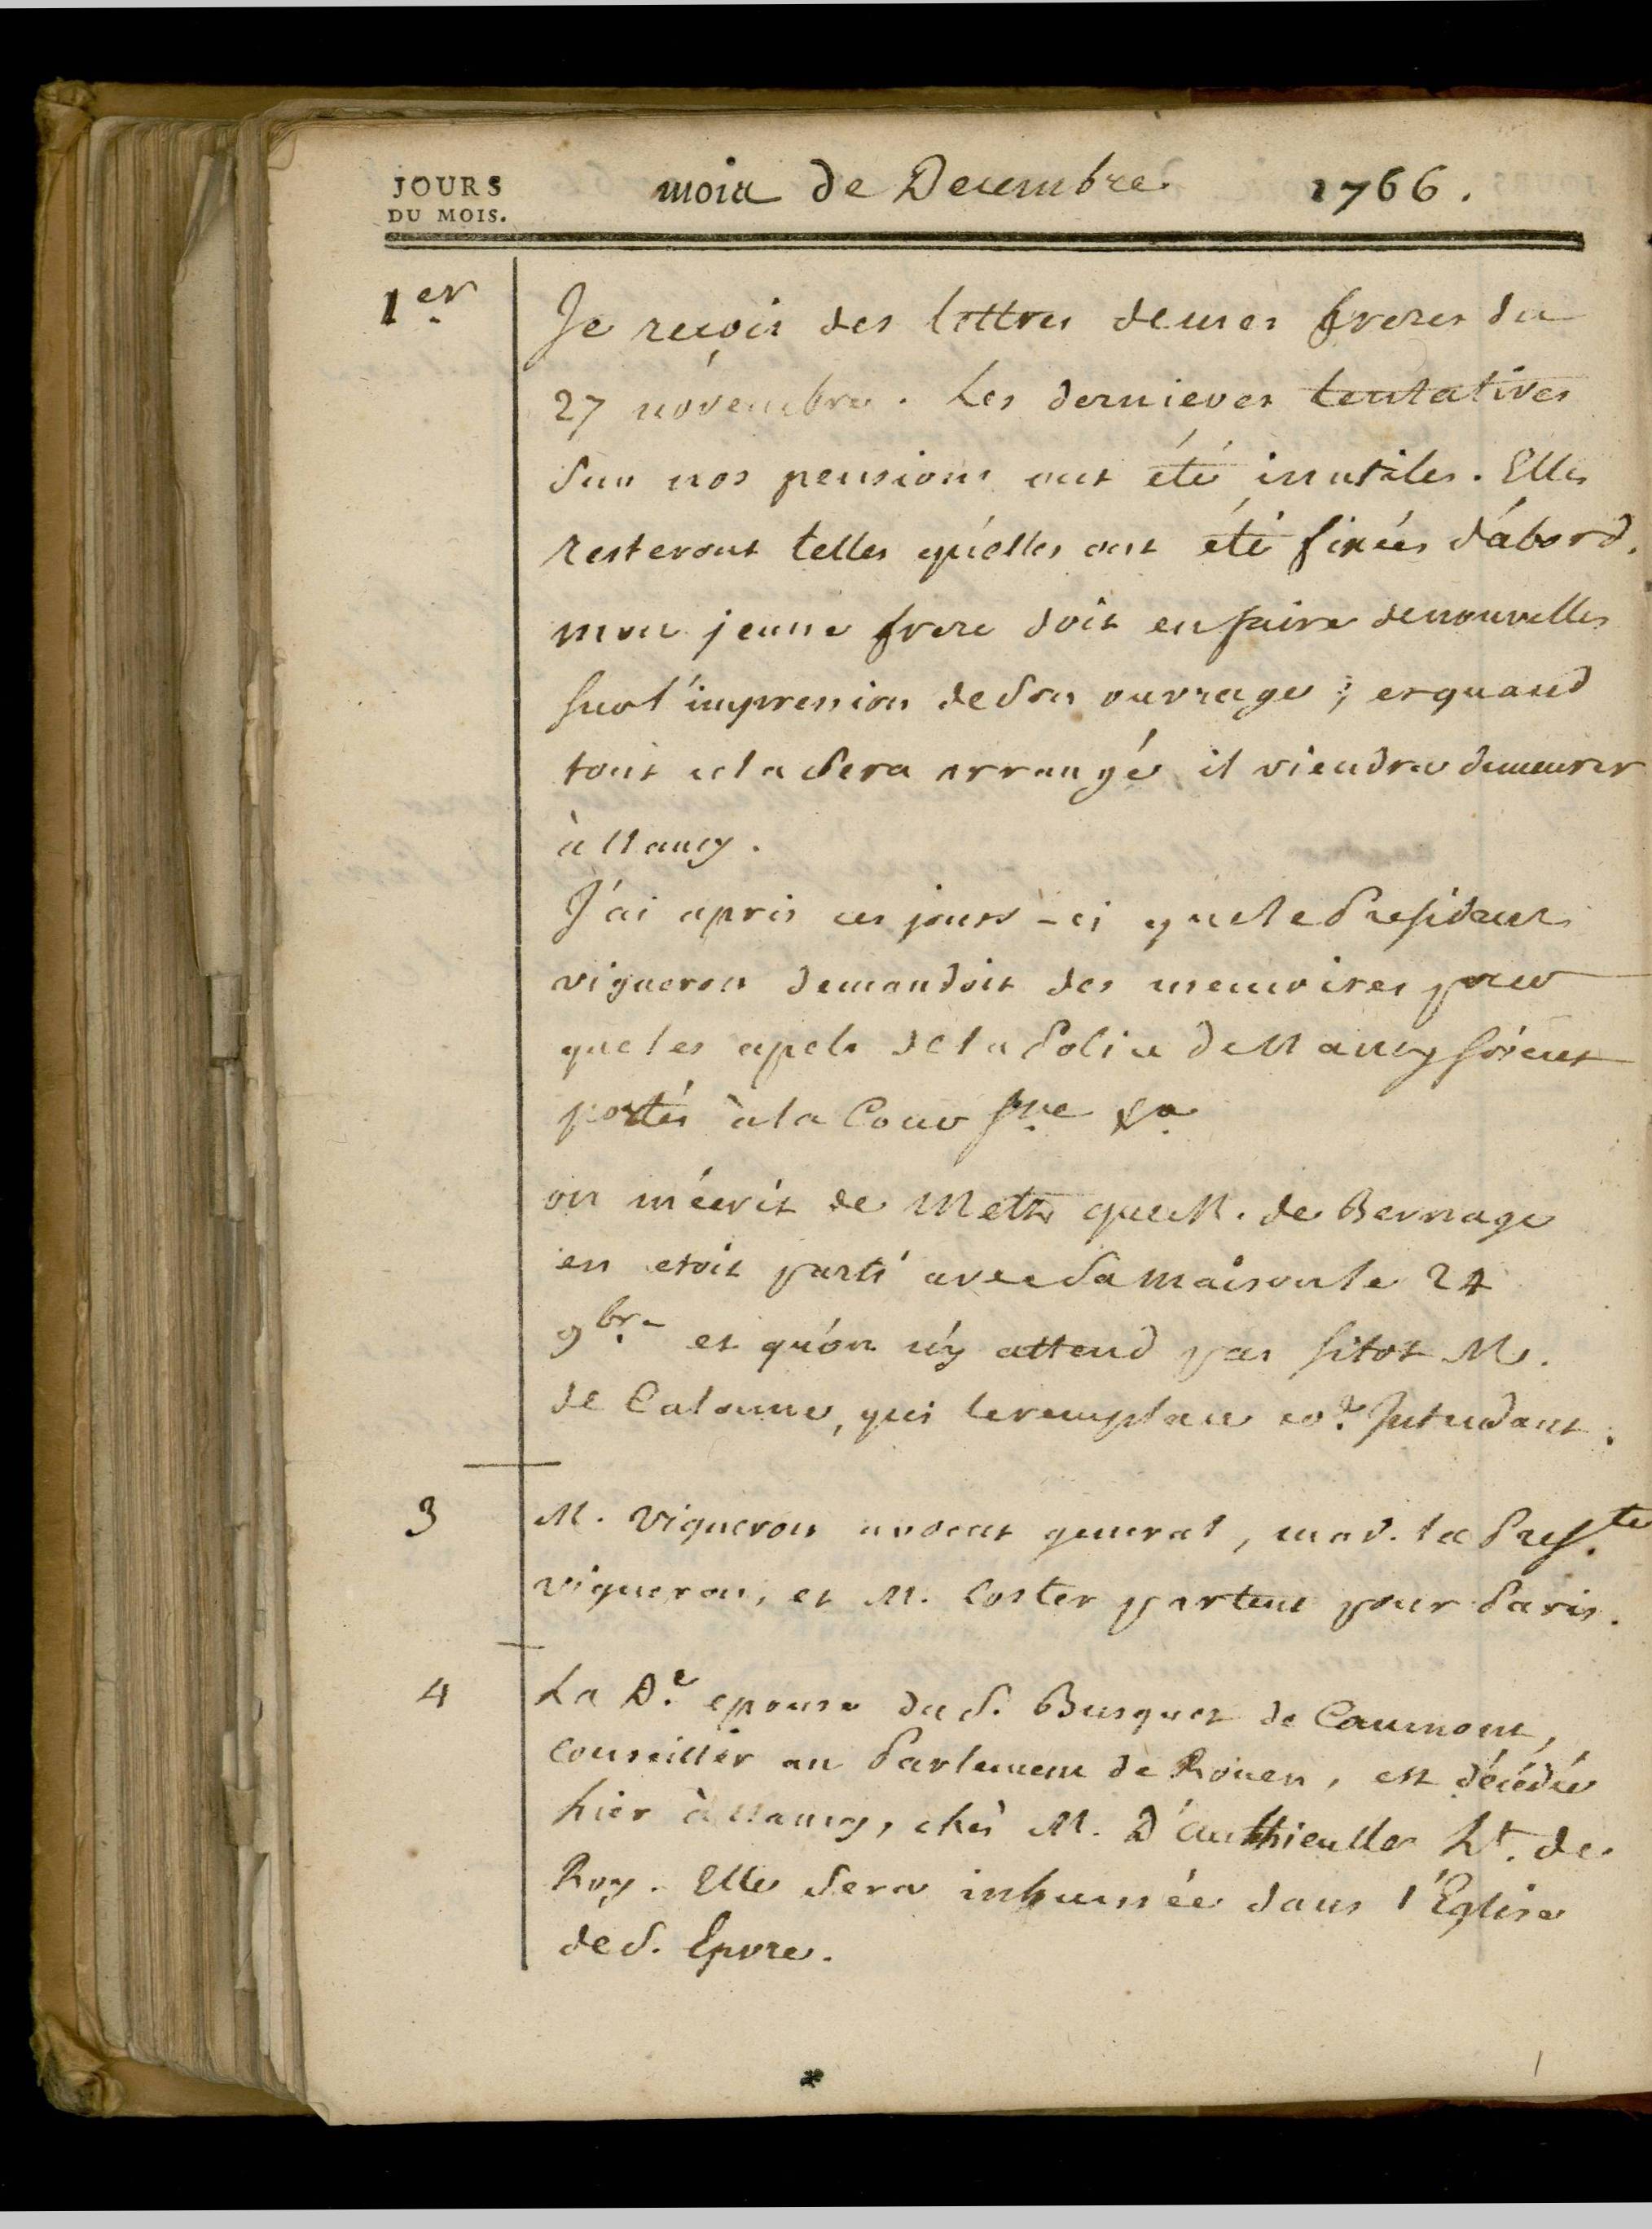 JOURS
DU MOIS.
mois de Decembre 1766.
1er.
Je reçois des lettres de mes freres du
27 novembre. Les dernieres tentatives
sur nos pensions ont été inutiles. Elles
resteront telles qu'elles ont été fixées d'abord.
mon jeune frere doit en faire de nouvelles
sur l'impression de son ouvrage ; et quand
tout cela sera arrangé, il viendra demeurer
à Nancy.
J'ai apris ces jours-ci que le President
vigneron demandoit des memoires pour
que les apels de la Police de Nancy soient
portés à la Cour sne &a.
on m'écrit de Metz que M. de Bernage
en etoit parti avec sa maison le 24
9bre et qu'on n'y attend pas sitot M.
de Calonne, qui le remplace coe. Intendant.
3
M. Vigneron avocat general, mad. la Preste.
vigneron, et M. Coster partent pour Paris.
4
La De. epouse du S. Busquet de Caumont,
conseiller au Parlement de Roüen, est décédée
hier à Nancy, chés M. D'authieulle Lt. de
Roy. Elle sera inhumée dans l'Eglise
de S. Epvre.